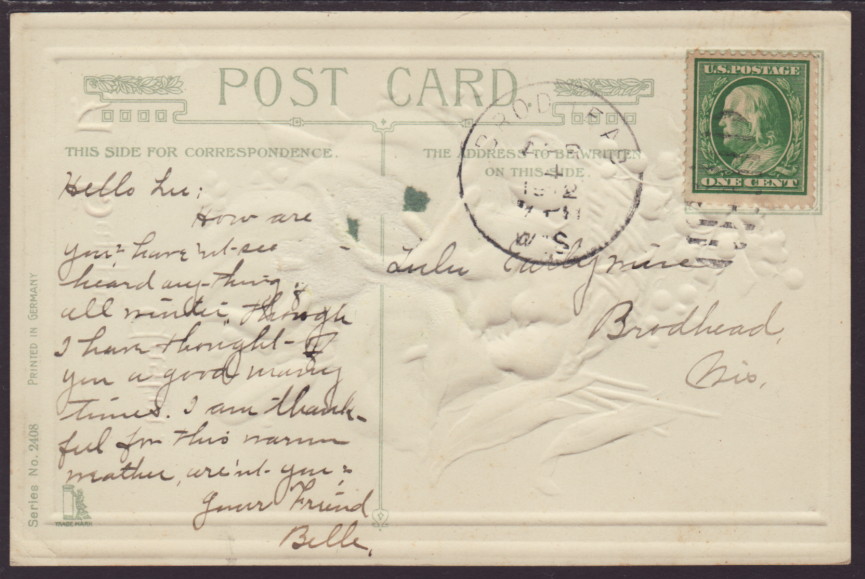 POST CARD
THIS SIDE FOR CORRESPONDENCE.
THE ADDRESS TO BE WRITTEN
ON THIS SIDE.
U.S. POSTAGE
ONE CENT
BRODHEAD
WIS.
Hello Lu;
How are
you? have n't see
heard any-thing
all winter, though
I have thought of
you a good many
times. I am thank-
ful for this warm
weather, are'nt you?
Your Friend
Belle.
Lulu
Brodhead,
Wis.
Series No. 2408 PRINTED IN GERMANY
TRADE MARK